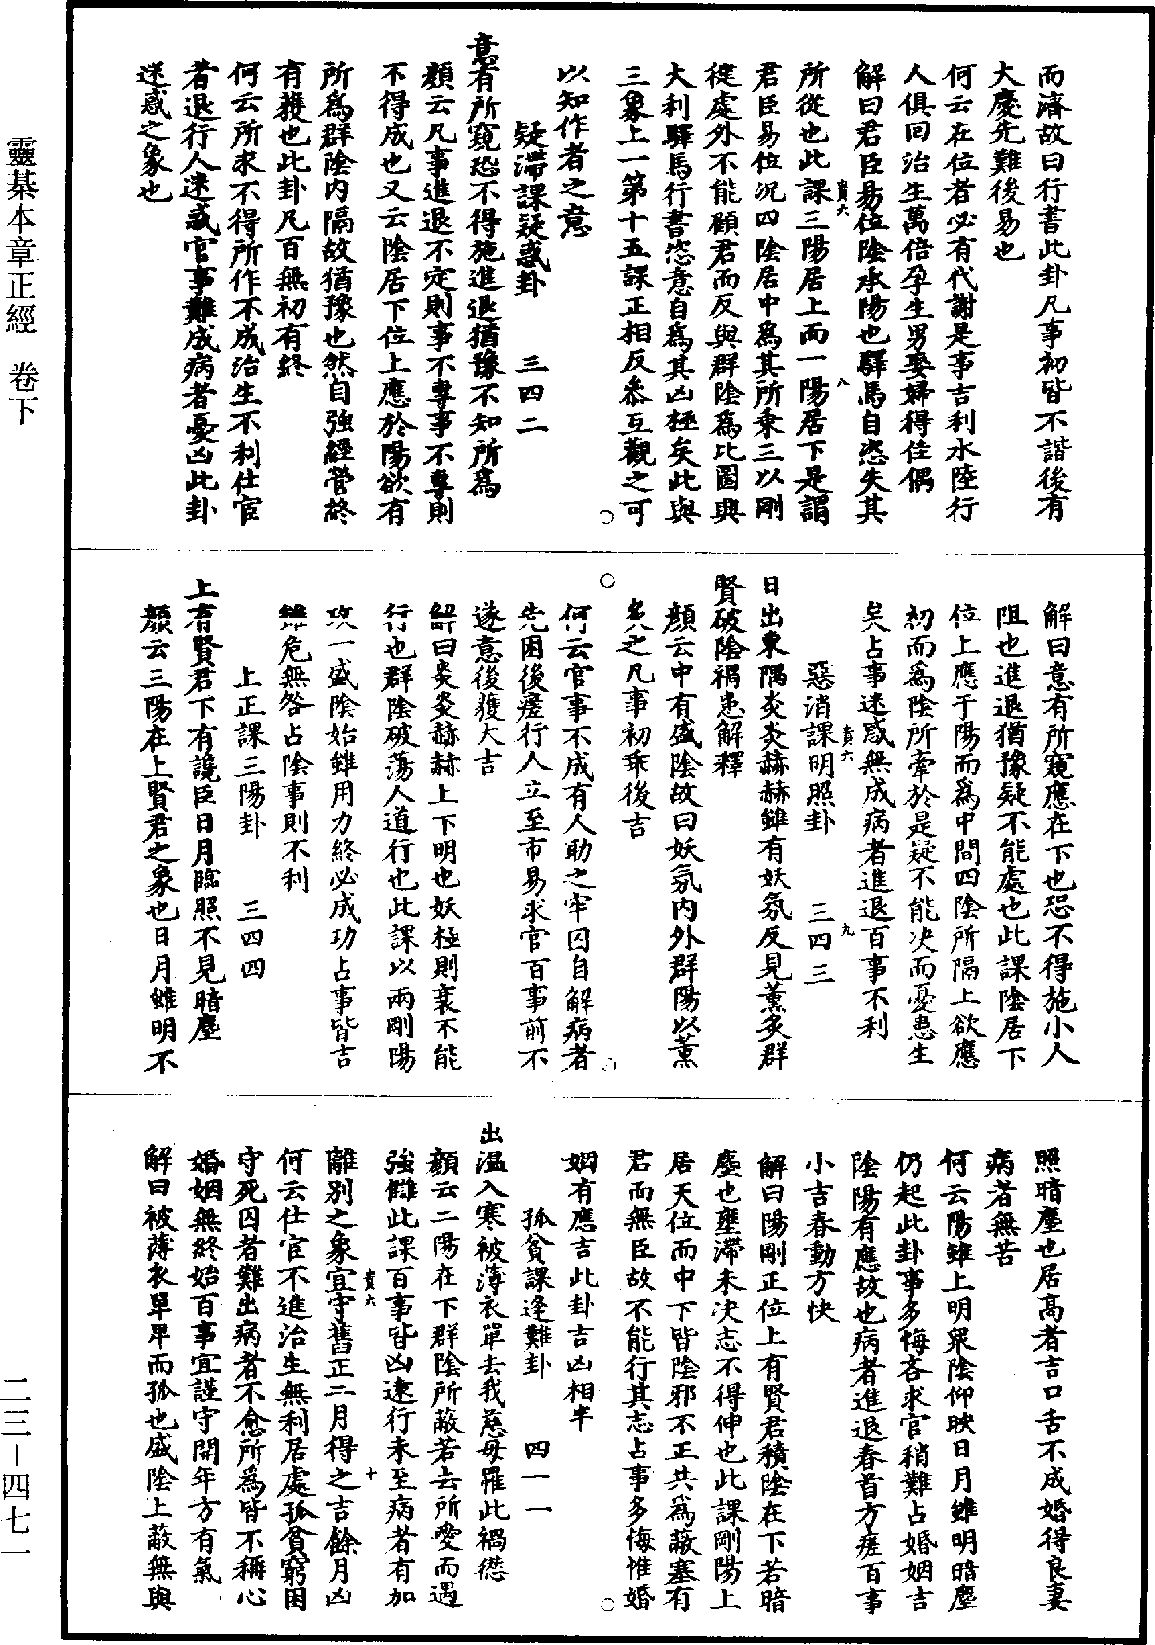 靈棊本章正經　卷下
二三－四七一
而濟故曰行書此卦凡事初皆不諧後有
大慶先難後易也
何云在位者必有代謝是事吉利水陸行
人俱回治生萬倍孕生男娶婦得佳偶
解曰君臣易位陰承陽也驛馬自恣失其
所從也此課三陽居上而一陽居下是謂
君臣易位況四陰居中為其所乘三以剛
從處外不能顧君而反與群陰為比固與
大利驛馬行書恣意自為其凶極矣此與
三象上一第十五課正相反叅互觀之可
以知作者之意
疑滯課疑惑卦　三四二
意有所窺恐不得施進退猶豫不知所為
顏云凡事進退不定則事不專事不專則
不得成也又云陰居下位上應於陽欲有
所為群陰內隔故猶豫也然自強經營終
有獲也此卦凡百無初有終
何云所求不得所作不成治生不利仕宦
者退行人迷惑官事難成病者憂凶此卦
迷惑之象也
解曰意有所窺應在下也恐不得施小人
阻也進退猶豫疑不能處也此課陰居下
位上應于陽而為中間四陰所隔上欲應
初而為陰所牽於是疑不能決而憂患生
矣占事迷惑無成病者進退百事不利
惡消課明照卦　三四三
日出東隅炎炎赫赫雖有妖氛反見薰炙群
賢破陰禍患解釋
顏云中有盛陰故曰妖氛內外群陽以薰
炙之凡事初乖後吉
何云官事不成有人助之牢囚自解病者
先困後瘥行人立至市易求官百事前不
遂意後獲大吉
解曰炎炎赫赫上下明也妖極則衰不能
行也群陰破蕩人道行也此課以兩剛陽
攻一盛陰始雖用力終必成功占事皆吉
雖危無咎占陰事則不利
上正課三陽卦　三四四
上有賢君下有讒臣日月臨照不見暗塵
顏云三陽在上賢君之象也日月雖明不
照暗塵也居高者吉口舌不成婚得良妻
病者無苦
何云陽雖上明衆陰仰映日月雖明暗塵
仍起此卦事多悔吝求官稍難占婚姻吉
陰陽有應故也病者進退春首方瘥百事
小吉春動方快
解曰陽剛正位上有賢君積陰在下若暗
塵也壅滯未決志不得伸也此課剛陽上
居天位而中下皆陰邪不正共為蔽塞有
君而無臣故不能行其志占事多悔惟婚
姻有應吉此卦吉凶相半
孤貧課逢難卦　四一一
出温入寒被薄衣單去我慈母罹此禍愆
顏云二陽在下群陰所蔽若去所愛而遇
強讎此課百事皆凶遠行未至病者有加
離別之象宜守舊正二月得之吉餘月凶
何云仕宦不進治生無利居處孤貧窮困
守死囚者難出病者不愈所為皆不稱心
婚姻無終始百事宜謹守開年方有氣
解曰被薄衣單卑而孤也盛陰上蔽無與